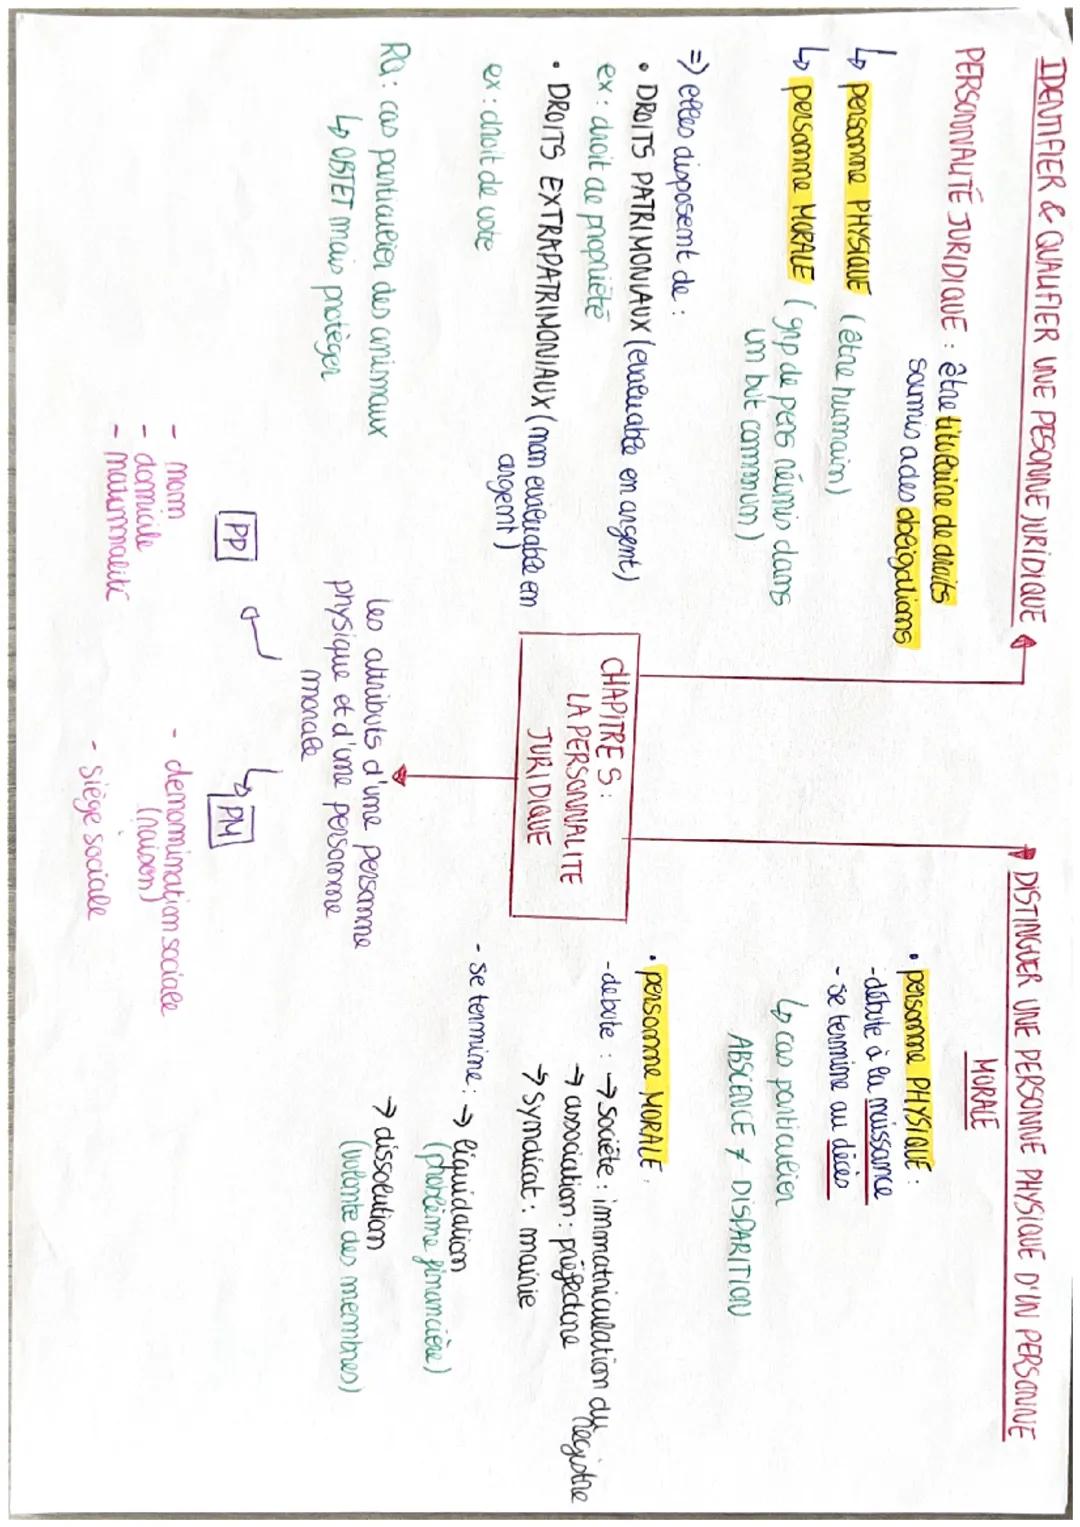 IDENTIFIER & QUALIFIER UNE PESONNE JURIDIQUE
PERSONNALITÉ JURIDIQUE : être titulaire de droits
soumis a des obligations
↳ personne PHYSIQUE (être humain)
↳ personne MORALE (grp de pers réunis dans
un but commun)
=> elles disposent de :
• DROITS PATRIMONIAUX (evaluable en argent)
ex : droit de propriété
• DROITS EXTRAPATRIMONIAUX (non evaluable en
argent)
ex : droit de vote
RQ : cas particulier des animaux
↳ OBJET mais protéger
CHAPITRE 5 :
LA PERSONNALITE
JURIDIQUE
DISTINGUER UNE PERSONNE PHYSIQUE D'UN PERSONNE
MORALE
• personne PHYSIQUE :
- débute à la naissance
- se termine au décès
↳ cas particulier
ABSCENCE ≠ DISPARITION
• personne MORALE :
- debute : → société : immatriculation du
registre
→ association : préfecture
→ Syndicat : mairie
- se termine : → liquidation
(problème financière)
→ dissolution
(volonte des membres)
Les attributs d'une personne
physique et d'une personne
morale
PP
- nom
- domicile
- nationnalité
↳ PM
- denomination sociale
(raison)
- Siège sociale